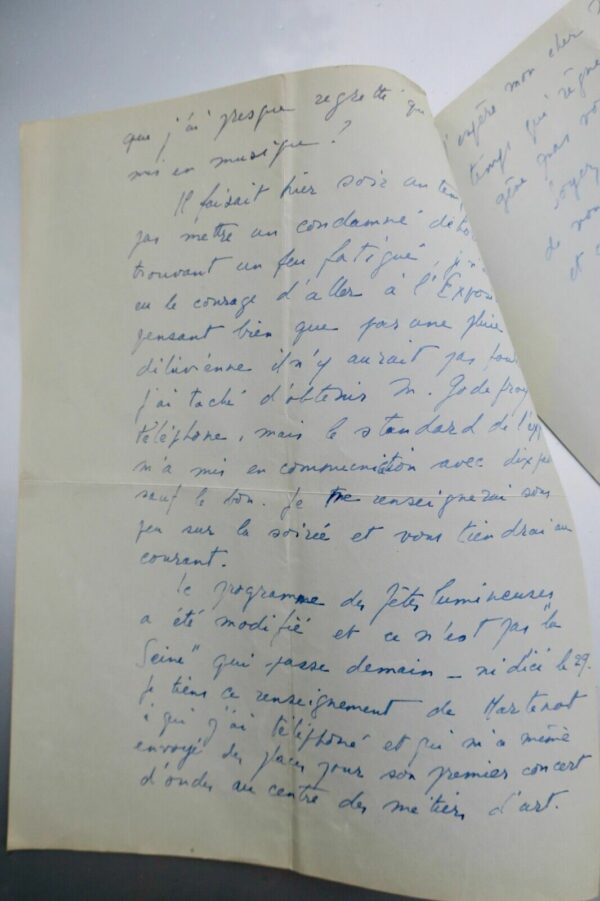 que j'ai presque regretté qu
mis en musique ?
Il faisait hier soir un tem
pas mettre un condamné deho
trouvant un peu fatigué,
eu le courage d'aller à l'Expos
pensant bien que par une pluie
diluvienne il n'y aurait pas four
j'ai taché d'obtenir M. Godefroy
téléphone, mais le standard de l'exp
m'a mis en communiction avec dix pe
sauf le bon. Je me renseignerai sous
peu sur la soirée et vous tiendrai au
courant.
Le programme des fêtes lumineuses
a été modifié et ce n'est pas "la
Seine" qui passe demain — ni d'ici le 29.
Je tiens ce renseignement de Martenot
à qui j'ai téléphoné et qui m'a même
envoyé des places pour son premier concert
d'ondes au centre des métiers d'art.
j'espère mon cher
temps qui règne
gêne pas vo
Soyez
de non
et